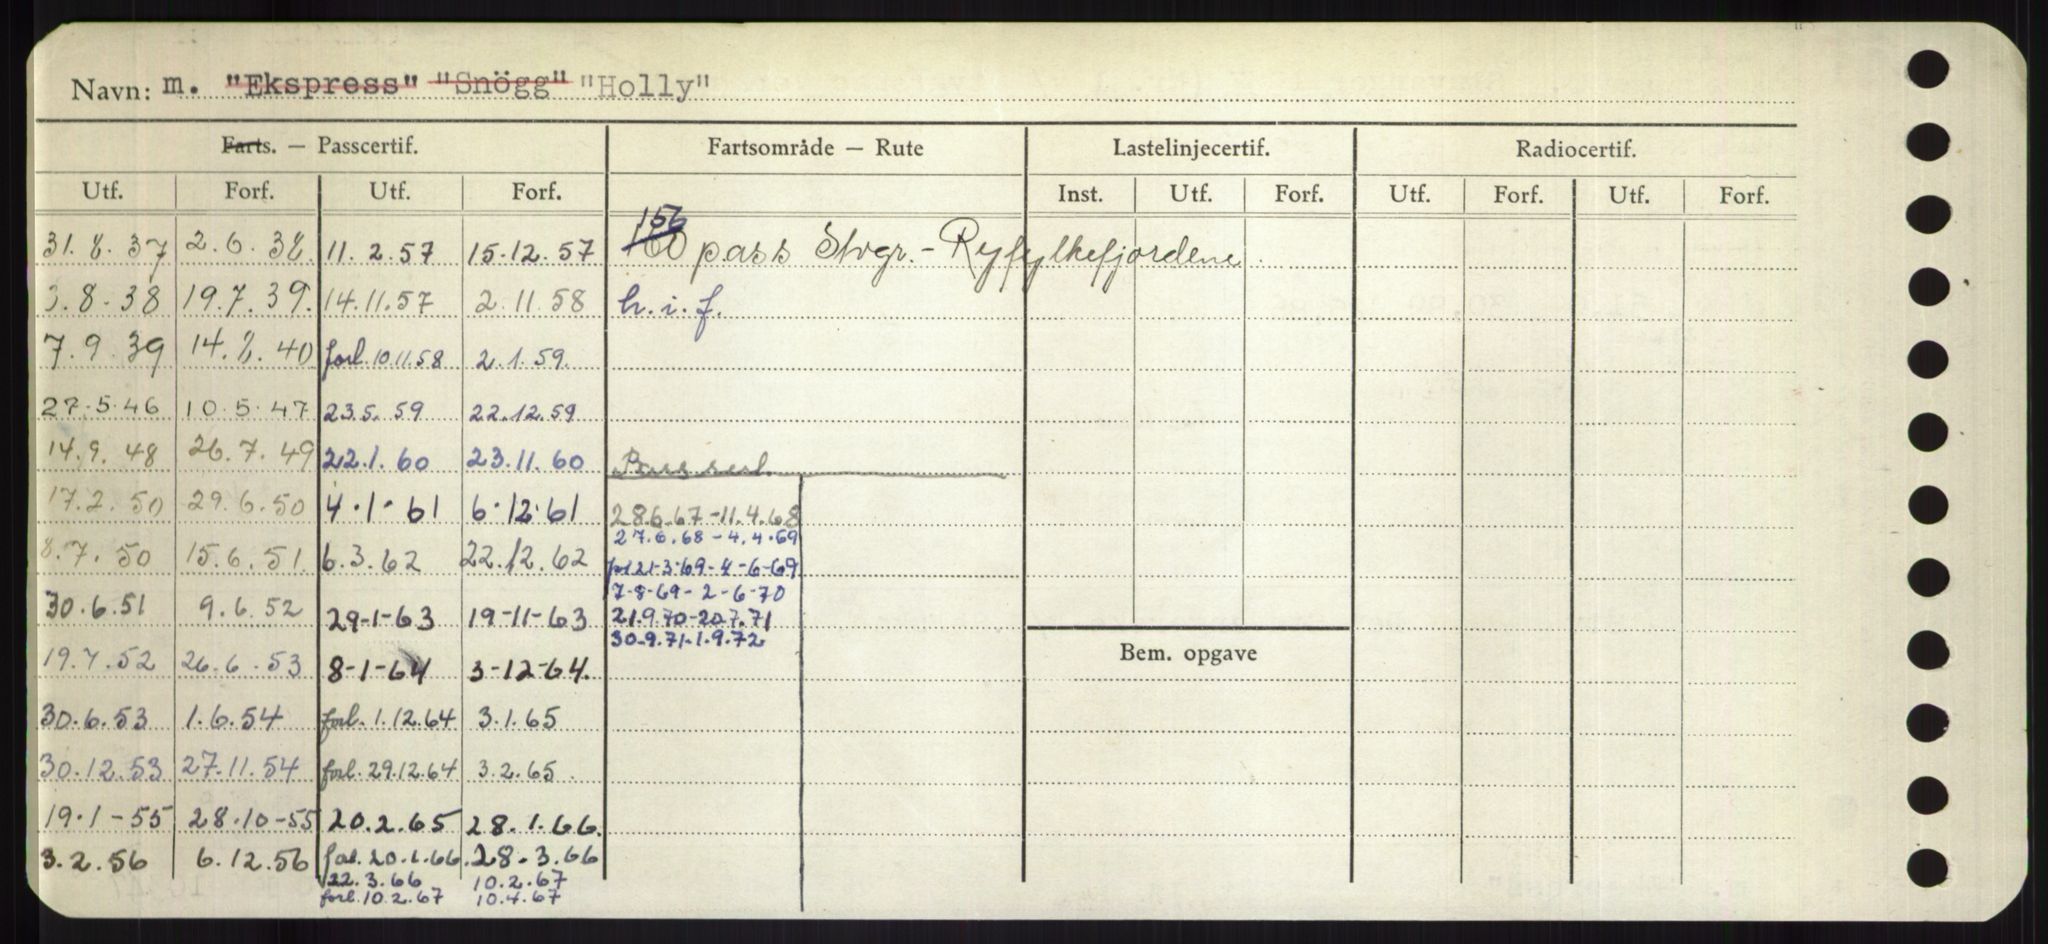 Navn: m. "Ekspress" "Snögg" "Holly"
Farts. — Passcertif. Fartsområde — Rute Lastelinjecertif. Radiocertif.
Utf. Forf. Utf. Forf. Inst. Utf. Forf. Utf. Forf. Utf. Forf.
156
31.8.37 2.6.38 11.2.57 15.12.57 160 pass Stvgr.- Ryfylkefjordene.
3.8.38 19.7.39. 14.11.57 2.11.58 h.i.f.
7.9.39 14.8.40 forl. 10.11.58 2.1.59.
27.5.46 10.5.47 23.5.59 22.12.59
14.9.48 26.7.49 22.1.60 23.11.60 Pass sert.
17.2.50 29.6.50 4.1.61 6.12.61 28.6.67-11.4.68
27.6.68-4.4.69
8.7.50 15.6.51. 6.3.62 22.12.62 forl 21-3-69-4-6-69
7-8-69-2-6-70
30.6.51 9.6.52 29-1-63 19-11-63 21.9.70-20.7.71
30.9.71.1.9.72
19.7.52 26.6.53 8-1-64 3-12-64. Bem. opgave
30.6.53 1.6.54 forl. 1.12.64 3.1.65
30.12.53 27.11.54 forl. 29.12.64 3.2.65.
19.1-55 28.10-55 20.2.65 28.1.66.
3.2.56 6.12.56 forl. 20.1.66. 28.3.66
22.3.66 10.2.67
forl. 10.2.67 10.4.67